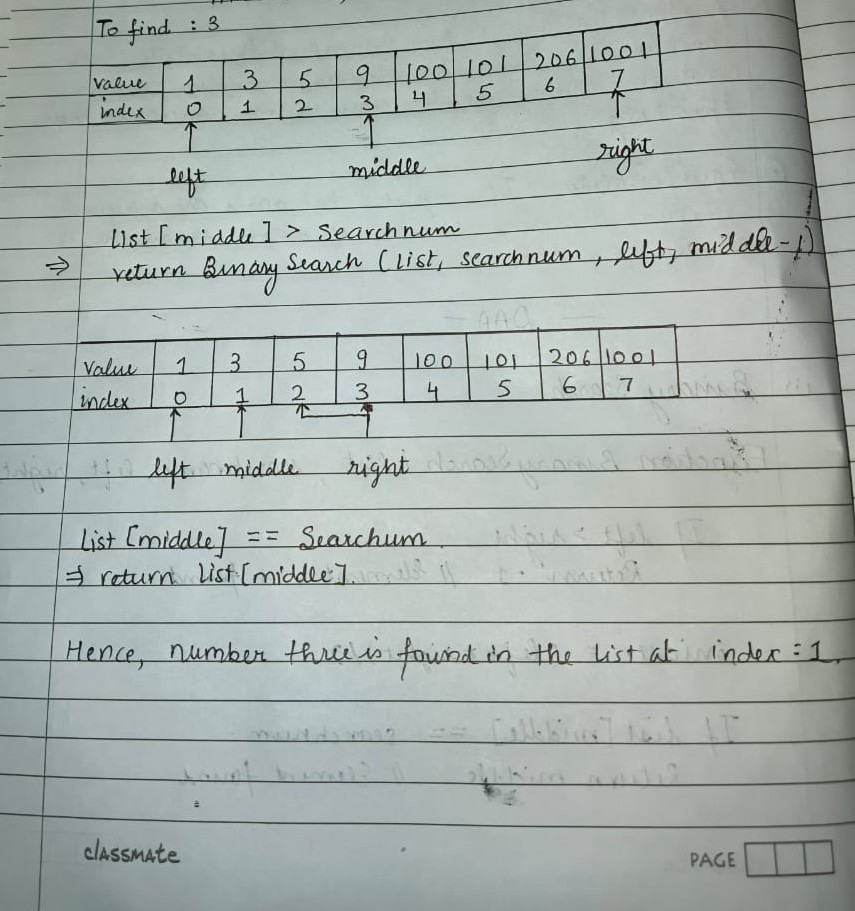 To find : 3
value 1 3 5 9 100 101 206 1001
index 0 1 2 3 4 5 6 7
left middle right
List [middle] > Searchnum
⇒ return Binary Search (list, searchnum, left, middle-1)
Value 1 3 5 9 100 101 206 1001
index 0 1 2 3 4 5 6 7
left middle right
List [middle] == Searchum.
⇒ return list[middle].
Hence, number three is found in the list at index = 1.
classmate
PAGE